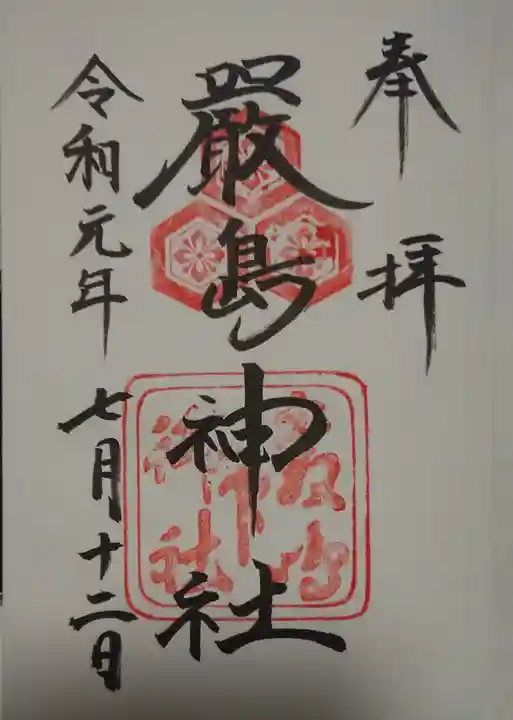 奉拝
嚴島神社
令和元年七月十二日